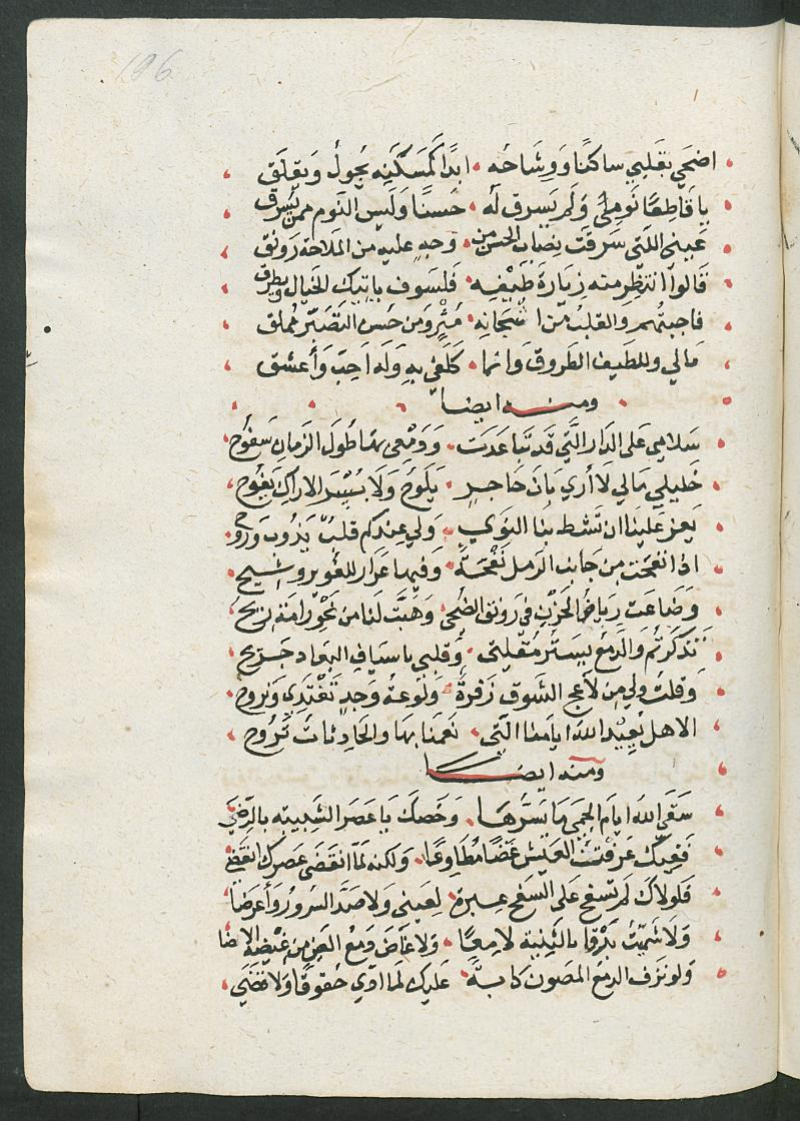 196
اضحى بقلبي ساكنا ووشاحه ۰ ابدا كمسكنه يجول ويقلق
يا قاطعا نومي ولم يسرق له ۰ حسنا وليس النوم ممن يسرق
عيني اللتي سرقت نصاب الحسن من ۰ وجه عليه من الملاحة رونق
قالوا انتظر منه زيارة طيفه ۰ فلسوف ياتيك الخيال ويطرق
فاجبتهم والقلب من اشجانه ۰ مثر ومن حسن التصبر مملق
مالي وللطيف الطروق وانما ۰ كلفي به وله احب وأعشق
ومنه ايضا
سلامي على الدار التي قد تباعدت ۰ ودمعي بها طول الزمان سفوح
خليلي مالي لا أرى بان حاجر ۰ يلوح ولا نشر الاراك يفوح
يعز علينا ان تشط بنا النوى ۰ ولي عندكم قلب يذوب وروح
اذا نفحت من جانب الرمل نفحة ۰ وفيها عرار للغوير وشيح
وضاعت رياض الحزن في رونق الضحى ۰ وهبت لنا من نحو رامة ريح
تذكرتم والدمع يستر مقلتي ۰ وقلبي باسياف البعاد جريح
وقلت ولي من لاعج الشوق زفرة ۰ ولوعة وجد تغتدي وتروح
الاهل يعيد الله ايامنا التي ۰ نعمنا بها والحادثات نزوح
ومنه ايضا
سقى الله ايام الحمى ما يسرها ۰ وخصك يا عصر الشبيبة بالرضى
ففيك عرفت العيش غضا مطاوعا ۰ ولكنه لما انقضى عصرك انقضى
فلولاك لم تسفح على السفح عبرة لعيني ولا صد السرور وأعرضا
ولا شمت برقا بالثنية لامعا ۰ ولا غاض دمع العين من غيضه الاضا
ولو نزف الدمع المصون كابة ۰ عليك لما ادى حقوقا ولا قضى